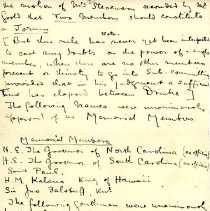 the motion of Mr. Stevenson seconded by Mr.
that Two Members should constitute
a Forum
Note.
[But this rule has never yet been interpreted
to cast any doubts on the power of a single
member, when there are no other members
present or thirsty to go into Sub-Committee
provided that in his judgment a sufficient
time has elapsed between Drinks.]
The following Names were unanimously
approved of as Memorial Members.
Memorial Members
H.E. The Governor of North Carolina (ex officio)
H.E. The Governor of South Carolina (ex officio)
Saint Paul.
H.M. Kalaua King of Hawaii
Sir Jno Falstaff Knt.
The following Gentlemen were unanimously